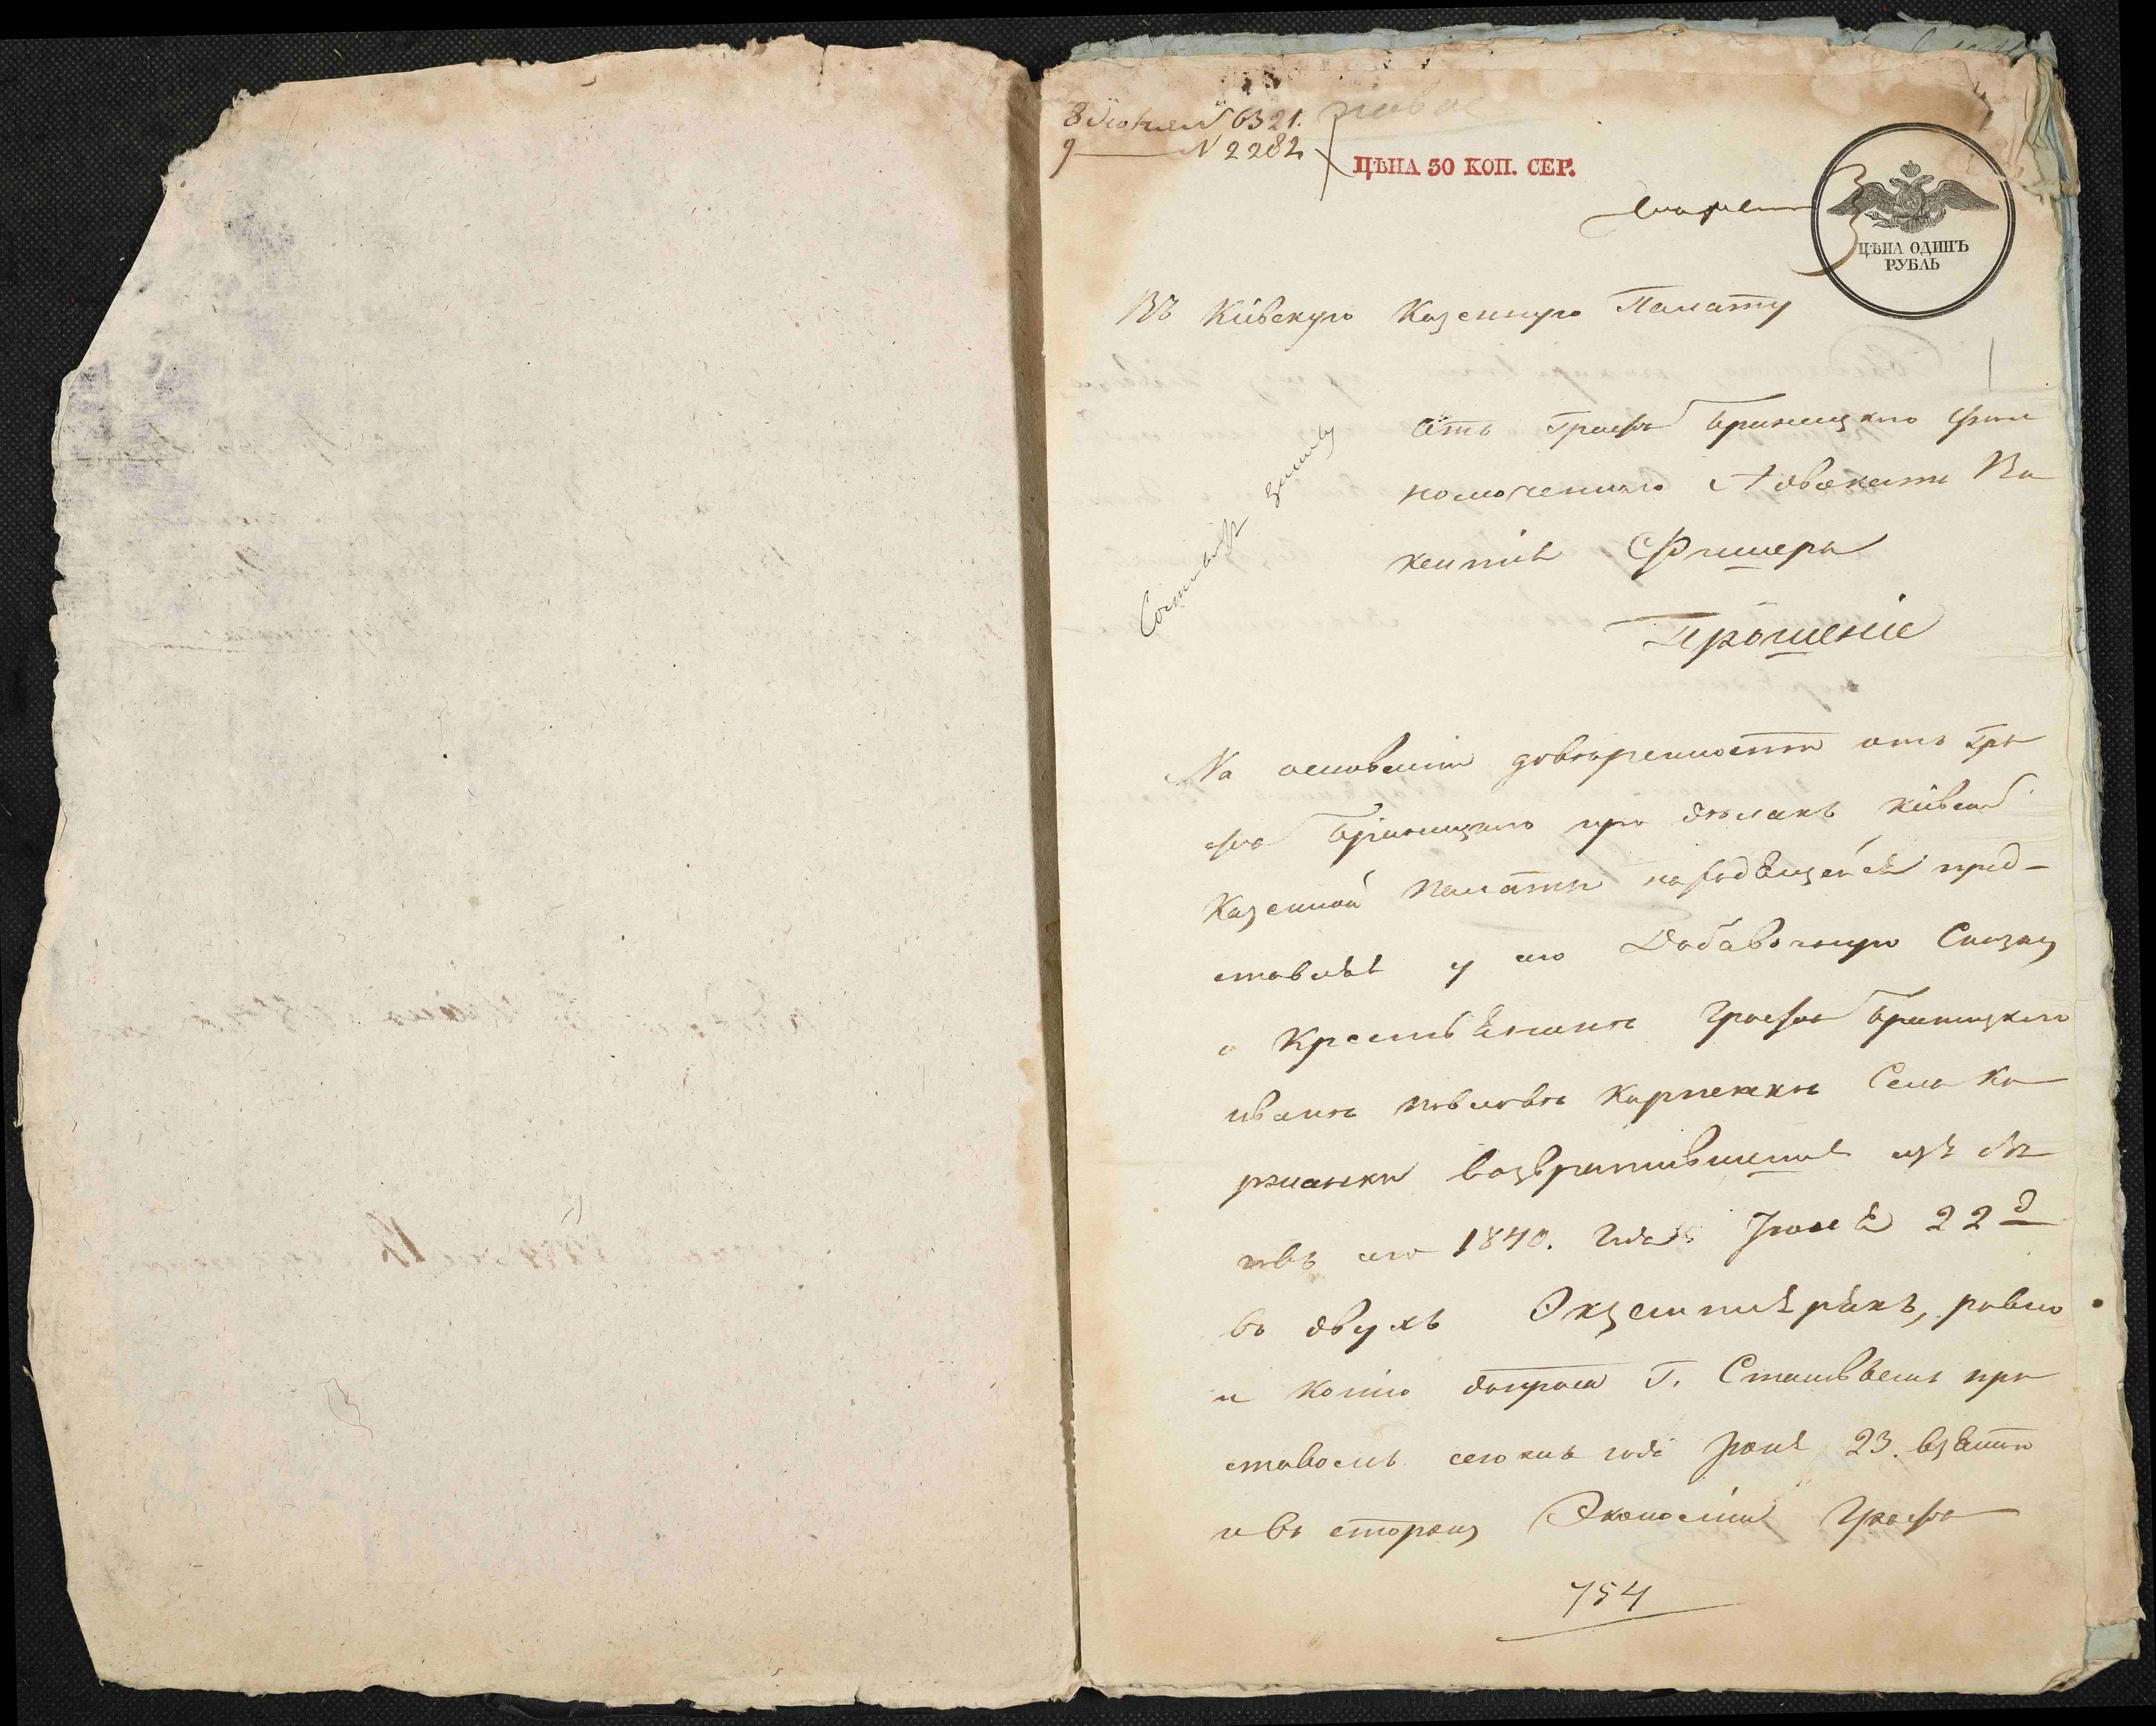 8 Июня N 6321.
9 — N 2282
ЦѢНА 30 КОП. СЕР.
ЦѢНА ОДИНЪ
РУБЛЬ
Въ Кіевскую Казенную Палату
Отъ Графа Браницкаго упол
номоченнаго Адвоката Ви
кентія Фишера
Прошеніе
На основаніи довѣренности отъ Гра
фа Браницкаго при дѣлахъ Кіевской
Казенной Палаты находящейся пред-
ставляя у сего Добавочную Сказку
о Крестьянинѣ Графа Браницкаго
Иванѣ Павловѣ Карпенкѣ Села Ка
возвратившемся изъ бѣ
говъ сего 1840. Года 22 д
въ двухъ Экземплярахъ, равно
и копію допроса Г. Становымъ При
ставомъ сего жъ года 23. взятаго
и въ сторону Экономіи Графа
754